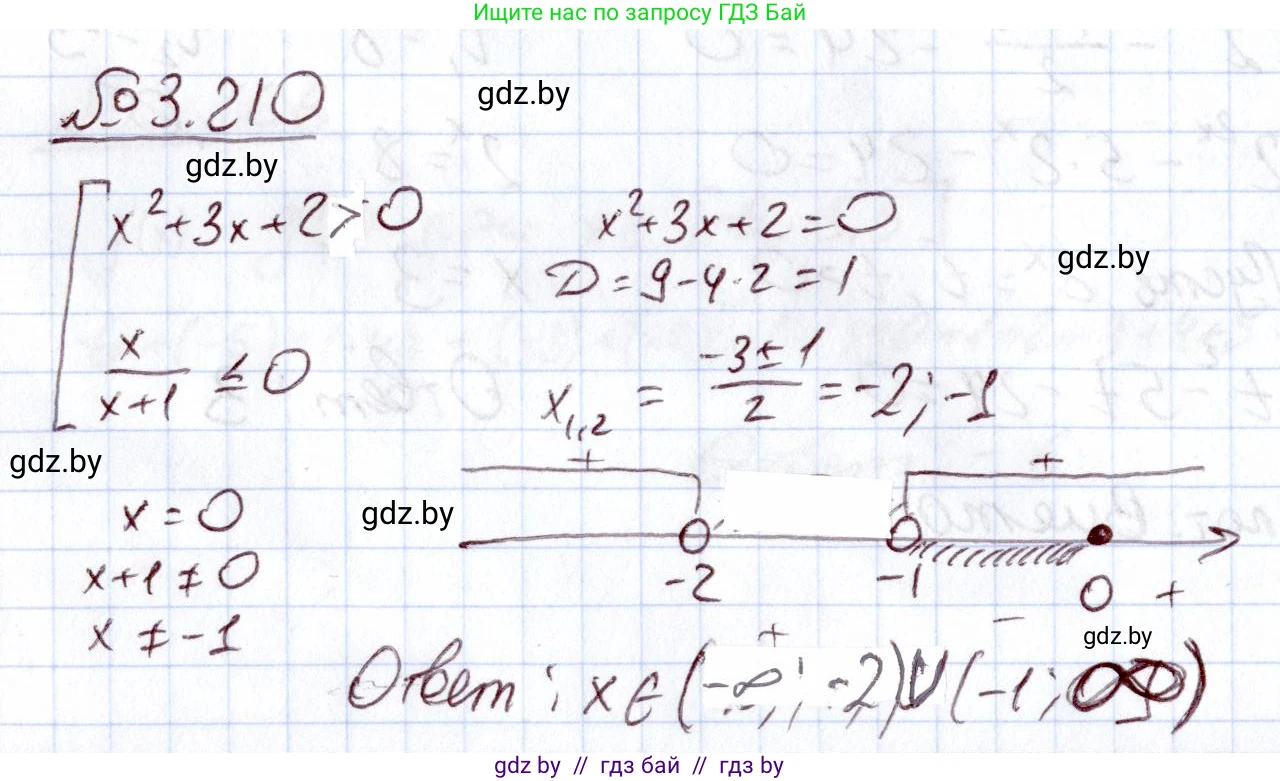 Ищите нас по запросу ГДЗ Бай
№ 3.210
gdz.by
gdz.by
x²+3x+2>0
x²+3x+2=0
gdz.by
D=9-4·2=1
x/(x+1) ≤ 0
x₁,₂ = (-3±1)/2 = -2; -1
gdz.by
+ +
x=0
gdz.by
x+1≠0
-2 -1 0
x≠-1
+ - +
gdz.by
Ответ: x∈(-∞; -2)∪(-1; ∞)
gdz.by // гдз бай // gdz.by